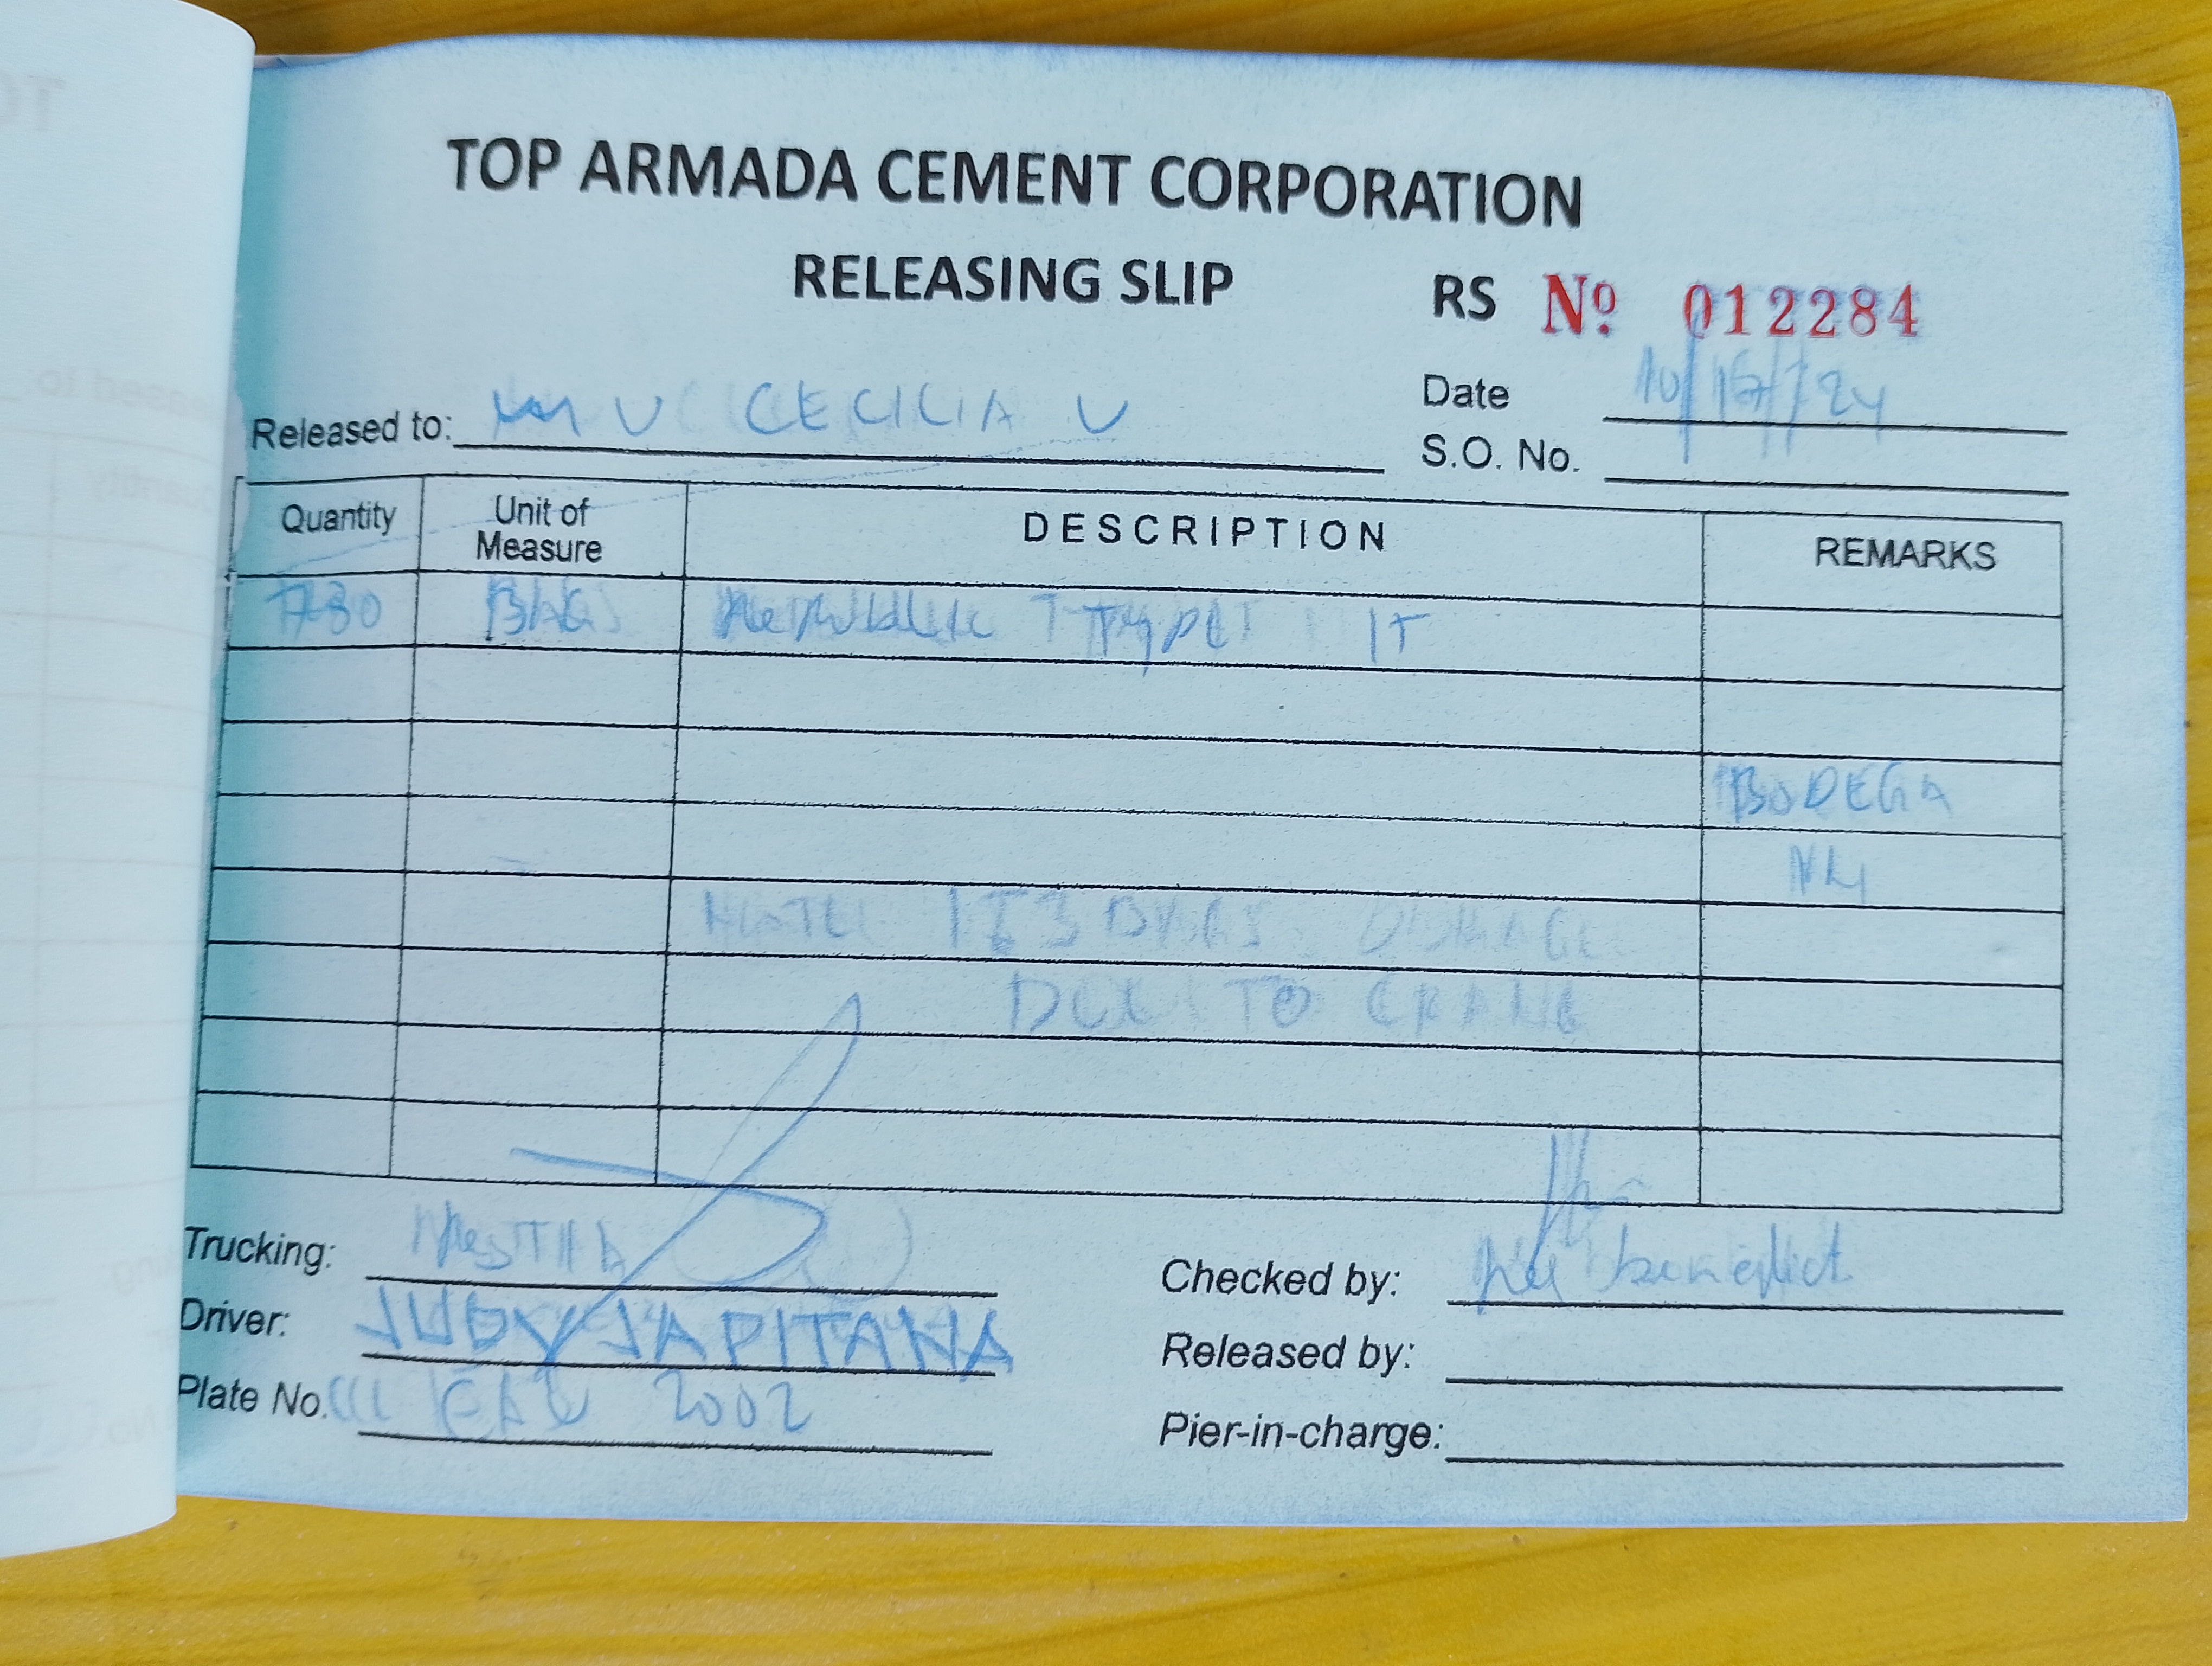 TOP ARMADA CEMENT CORPORATION
RELEASING SLIP
RS Nº 012284
Released to: CECILIA V
Date
S.O. No.
Quantity Unit of Measure DESCRIPTION REMARKS
BAGS Republic TYPE 1T
BODEGA
N4
BAGS DAMAGE
DUE TO CRANE
Trucking:
Driver: JUDY JAPITANA
Plate No. 2002
Checked by: benedict
Released by:
Pier-in-charge: